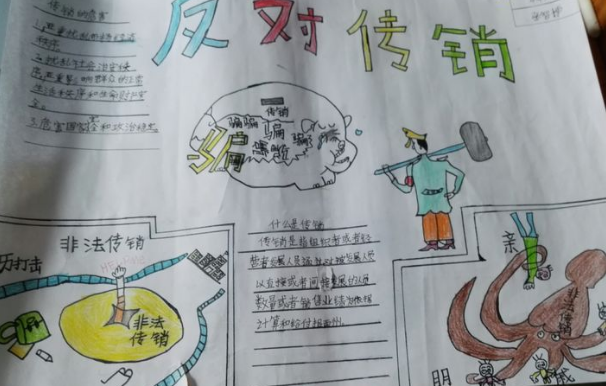 反对传销
传销的危害
1.严重扰乱市场经济
秩序
2.扰乱社会治安使
生活秩序和生命财产安
全。
3.危害国家安全和政治稳定
传销
骗骗
骗
骗
什么是传销
传销是指组织者或者经
营者发展人员,通过对被发展人员
以直接或者间接发展的人员
数量或者销售业绩为依据
计算和给付报酬
非法传销
厉打击
非法
传销
亲
非法
传销
朋
戚